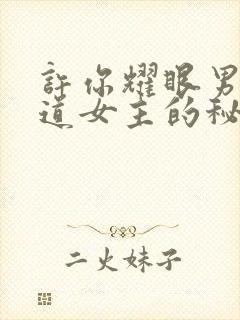 許你耀眼男
道女主的秘
二火妹子